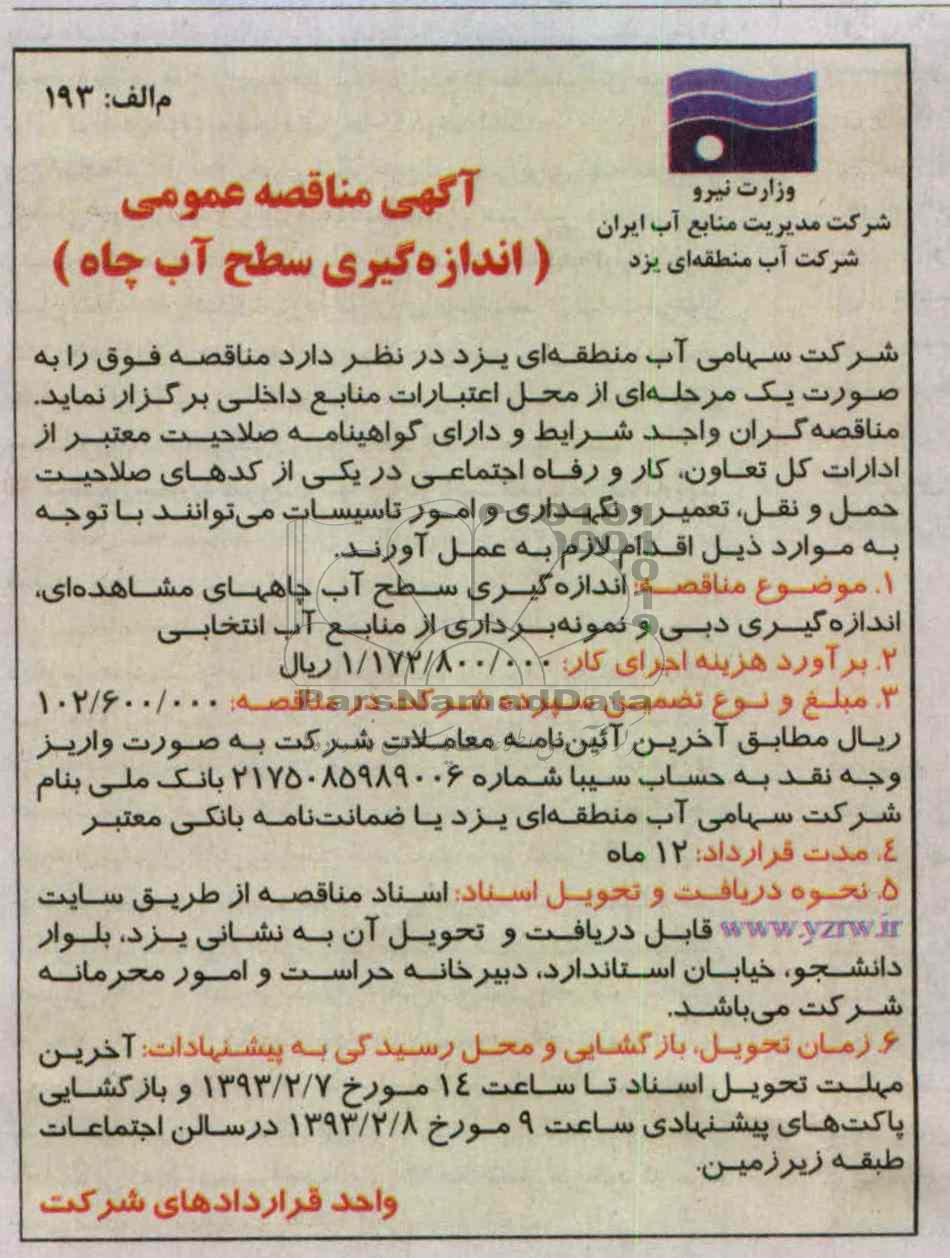 م‌الف: ۱۹۳
وزارت نیرو
شرکت مدیریت منابع آب ایران
شرکت آب منطقه‌ای یزد
آگهی مناقصه عمومی
( اندازه‌گیری سطح آب چاه )
شرکت سهامی آب منطقه‌ای یزد در نظر دارد مناقصه فوق را به
صورت یک مرحله‌ای از محل اعتبارات منابع داخلی برگزار نماید.
مناقصه‌گران واجد شرایط و دارای گواهینامه صلاحیت معتبر از
ادارات کل تعاون، کار و رفاه اجتماعی در یکی از کدهای صلاحیت
حمل و نقل، تعمیر و نگهداری و امور تاسیسات می‌توانند با توجه
به موارد ذیل اقدام لازم به عمل آورند.
۱. موضوع مناقصه: اندازه‌گیری سطح آب چاههای مشاهده‌ای،
اندازه‌گیری دبی و نمونه‌برداری از منابع آب انتخابی
۲. برآورد هزینه اجرای کار: ۱/۱۷۲/۸۰۰/۰۰۰ ریال
۳. مبلغ و نوع تضمین سپرده شرکت در مناقصه: ۱۰۲/۶۰۰/۰۰۰
ریال مطابق آخرین آئین‌نامه معاملات شرکت به صورت واریز
وجه نقد به حساب سیبا شماره ۲۱۷۵۰۸۵۹۸۹۰۰۶ بانک ملی بنام
شرکت سهامی آب منطقه‌ای یزد یا ضمانت‌نامه بانکی معتبر
۴. مدت قرارداد: ۱۲ ماه
۵. نحوه دریافت و تحویل اسناد: اسناد مناقصه از طریق سایت
www.yzrw.ir قابل دریافت و تحویل آن به نشانی یزد، بلوار
دانشجو، خیابان استاندارد، دبیرخانه حراست و امور محرمانه
شرکت می‌باشد.
۶. زمان تحویل، بازگشایی و محل رسیدگی به پیشنهادات: آخرین
مهلت تحویل اسناد تا ساعت ۱۴ مورخ ۱۳۹۳/۲/۷ و بازگشایی
پاکت‌های پیشنهادی ساعت ۹ مورخ ۱۳۹۳/۲/۸ درسالن اجتماعات
طبقه زیرزمین.
واحد قراردادهای شرکت
ParsNamadData